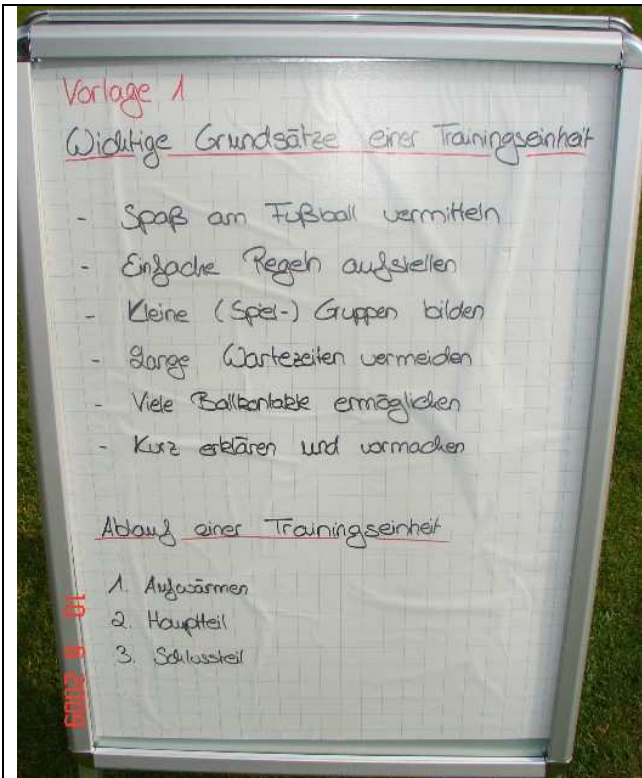 Vorlage 1
Wichtige Grundsätze einer Trainingseinheit
- Spaß am Fußball vermitteln
- Einfache Regeln aufstellen
- Kleine (Spiel-) Gruppen bilden
- Lange Wartezeiten vermeiden
- Viele Ballkontakte ermöglichen
- Kurz erklären und vormachen
Ablauf einer Trainingseinheit
1. Aufwärmen
2. Hauptteil
3. Schlussteil
10 6 2009